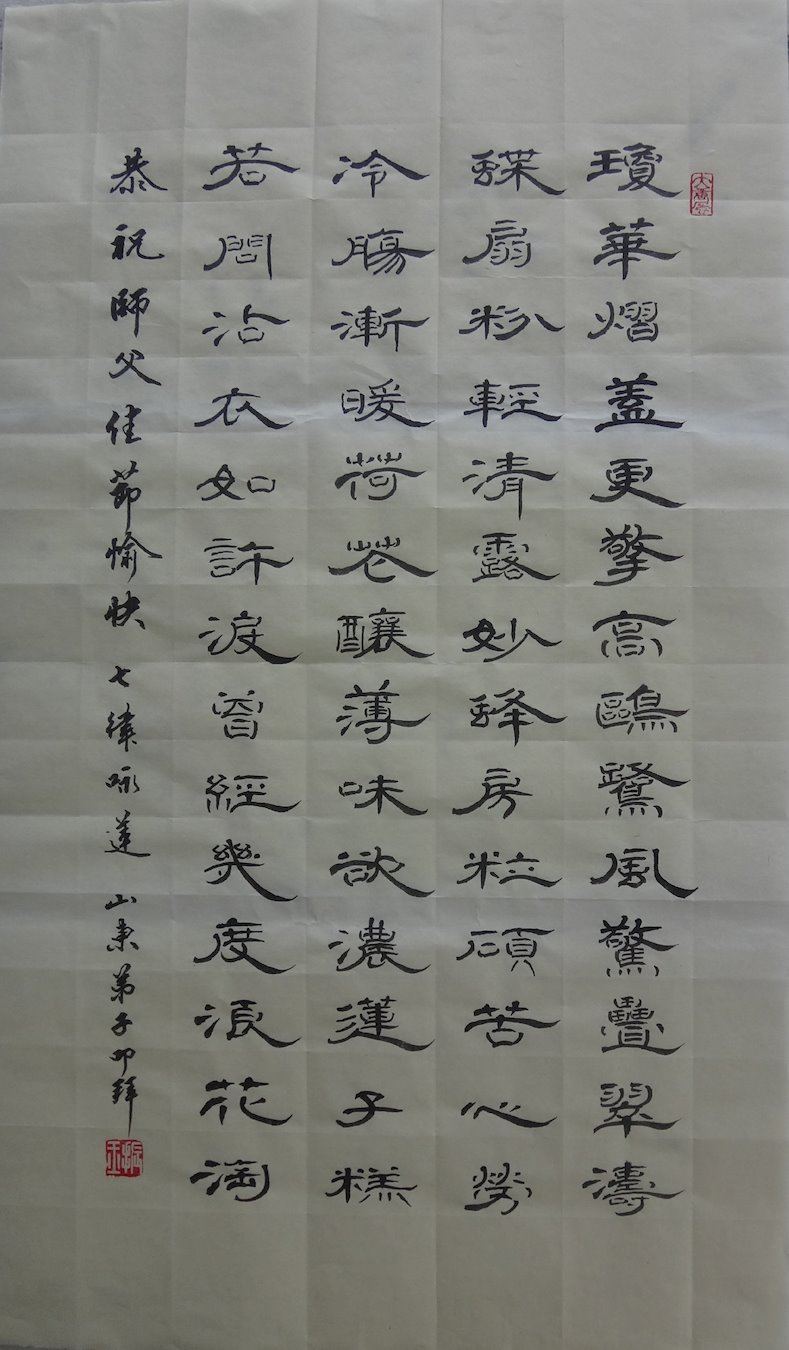 瓊華熠蓋更擎高鷗鷺風驚疊翠濤
蝶扇粉輕清露妙蜂房粒碩苦心勞
冷腸漸暖荷花釀薄味欲濃蓮子糕
若問沾衣如許淚曾經幾度浪花淘
恭祝師父佳節愉快 七律咏蓮 山東弟子叩拜